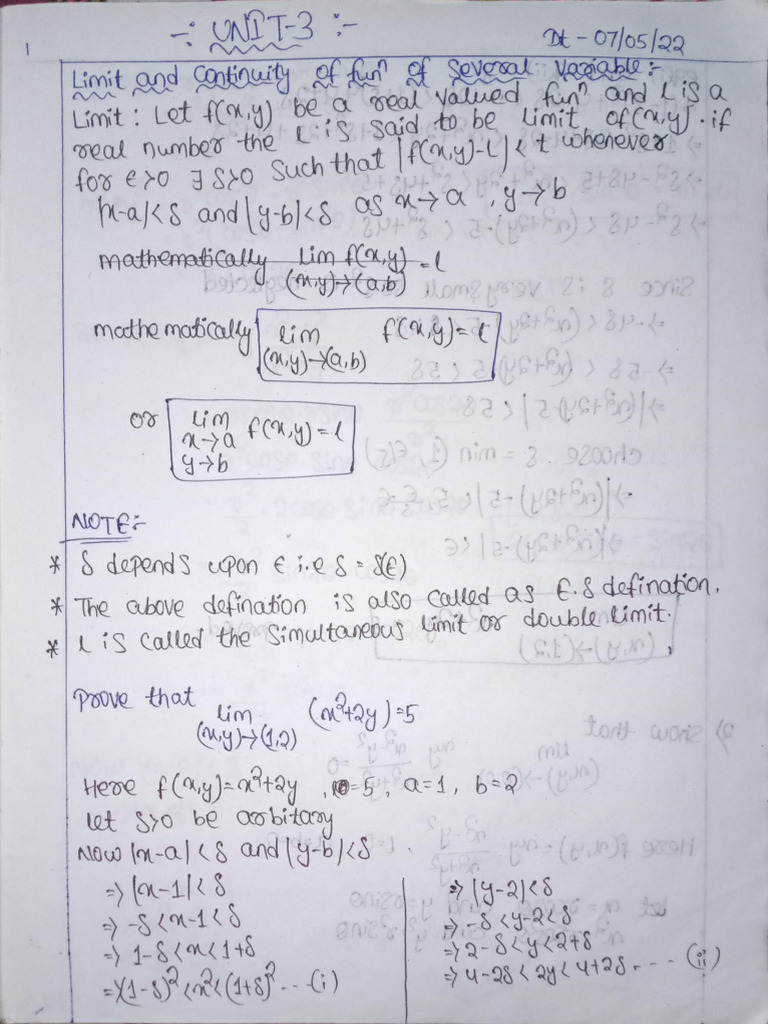 1
-: UNIT-3 :-
Dt - 07/05/22
Limit and Continuity of funⁿ of Several Variable :-
Limit : Let f(x,y) be a real valued funⁿ and l is a
real number the l is said to be limit of(x,y). if
for ϵ>0 ∃ δ>0 such that |f(x,y)-l| < t whenever
|x-a|<δ and |y-b|<δ as x→a , y→b
mathematically lim f(x,y) = l
(x,y)→(a,b)
mathematically lim f(x,y)= l
(x,y)→(a,b)
or lim f(x,y)=l
x→a
y→b
NOTE:-
* δ depends upon ϵ i.e δ = δ(ϵ)
* The above defination is also called as ϵ.δ defination.
* l is called the simultaneous limit or double limit.
Prove that lim (x²+2y)=5
(x,y)→(1,2)
Here f(x,y)=x²+2y , l=5, a=1, b=2
let δ>0 be arbitary
Now |x-a|<δ and |y-b|<δ
⇒ |x-1|<δ
⇒ -δ<x-1<δ
⇒ 1-δ<x<1+δ
⇒(1-δ)²<x²<(1+δ)² ... (i)
⇒ |y-2|<δ
⇒ -δ<y-2<δ
⇒ 2-δ<y<2+δ
⇒ 4-2δ<2y<4+2δ .... (ii)